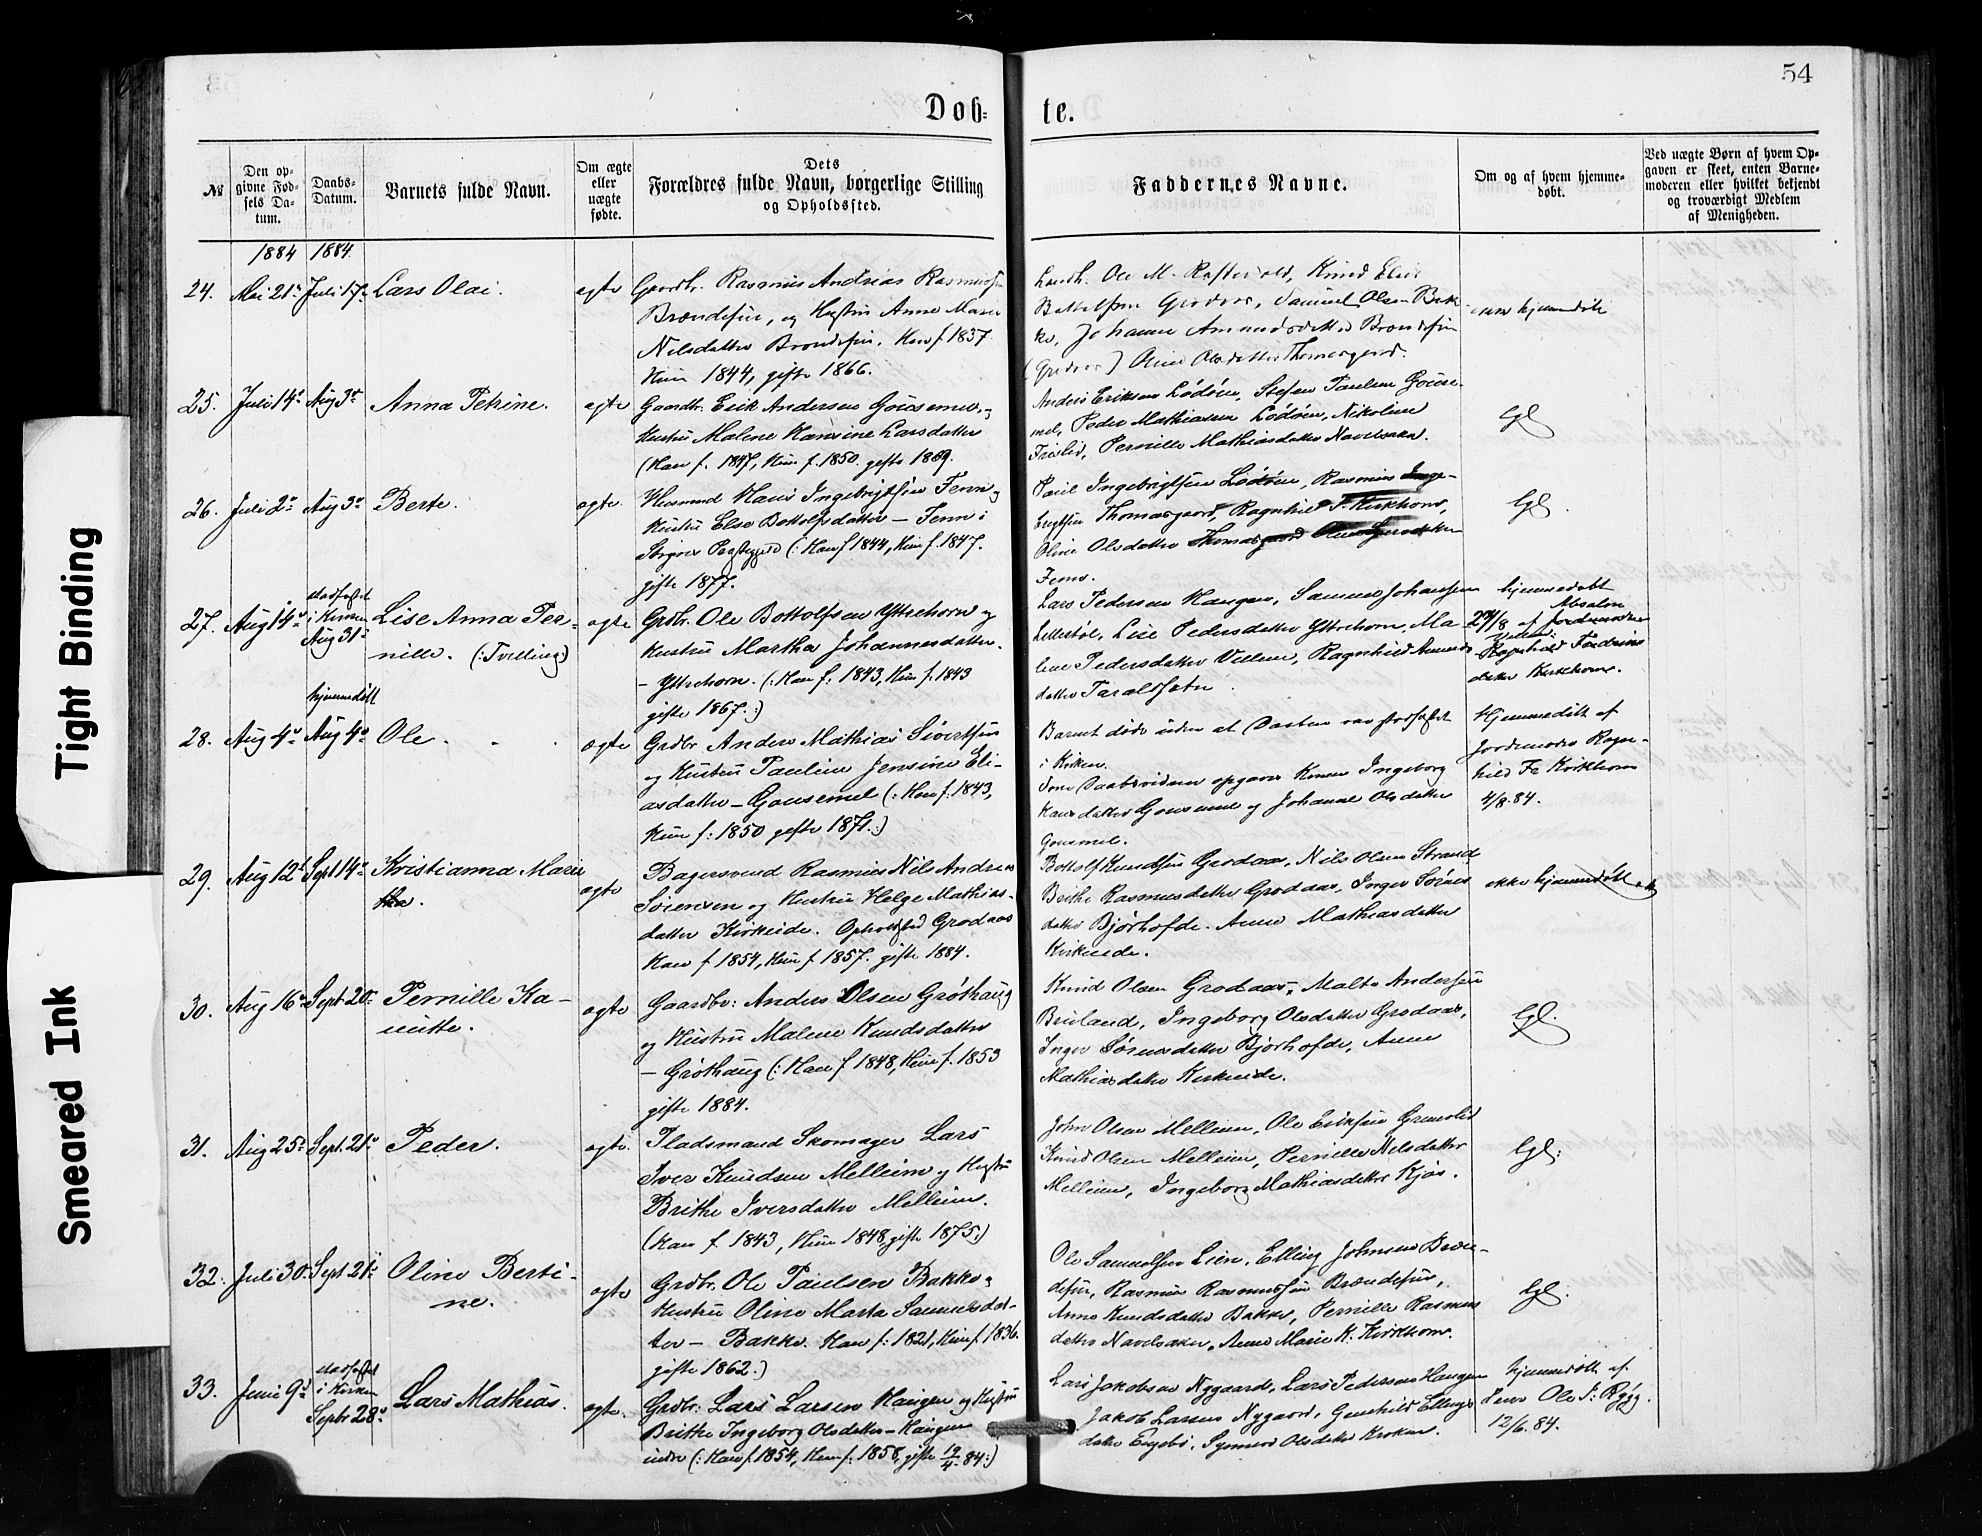 54
Døb-
te.
№
Den op-
givne Fød-
sels Da-
tum.
Daabs-
Datum.
Barnets fulde Navn.
Om ægte
eller
uægte
fødte.
Dets
Forældres fulde Navn, borgerlige Stilling
og Opholdssted.
Faddernes Navne.
Om og af hvem hjemme-
døbt.
Ved uægte Børn af hvem Op-
gaven er skeet, enten Barne-
moderen eller hvilket bekjendt
og troværdigt Medlem
af Menigheden.
1884 1884
24. Mai 21de Juli 17de Lars Olai. ægte
Rasmus Andreas Rasmussen
Brændefur, og Hustru Anne Marie
Nilsdatter Brændefur. Han f 1837
Hun 1844, gifte 1866.
Ole M. Knud
Grodaas, Samuel Olsen Bak-
ke, Johanne Amundsdatter Brændefur
(Grodaas) Oline Olsdatter Thomasgaard.
ikke hjemmedøbt
25. Juli 14de Aug 3de Anna Petrine. ægte
Gaardbr. Erik Andersen Gausemel,
Hustru Malene Hansine Larsdatter
(Han f. 1847, Hun f. 1850. gifte 1869.
Anders Eriksen Lødøen, Stefen Paulsen Gause-
mel, Peder Mathiasen Lødøen, Nikoline
Frislid, Pernille Mathiasdatter Navelsaker.
Lgl
26. Juli 2den Aug 3de Berte. ægte.
Husmand Hans Ingebrigtsen Tenn og
Hustru Else Bottolfsdatter - Tenn i
(: Han f 1844, Hun f. 1847.
gifte 1877.
Paul Ingebrigtsen Lødøen, Rasmus Inge-
brigtsen Thomasgaard, Ragnhild F. Kirkhorn,
Oline Olsdatter Thomasgaard
Lgl.
27. Aug 14de
stadfæstet
i Kirken
Aug 31te
Lise Anna Per-
nille. (: Tvilling)
ægte
Grdbr. Ole Bottolfsen Yttrehorn og
Hustru Martha Johannesdatter.
- Yttrehorn. (: Han f: 1843, Hun f. 1843
gifte 1867.:)
Lars Pedersen Haugen, Johansen
Lillestøl, Lise Pedersdatter Yttrehorn, Ma-
lene Pedersdatter Vellene, Ragnhild Amunds
datter Taraldsæter.
hjemmedøbt
29/8 af
Ragnhild Fredriks
datter Kirkhorn.
28. Aug 4de
hjemmedøbt
Aug 4de Ole. ægte
Grdbr Anders Mathias Sivertsen
og Hustru Pauline Jensine Eli-
asdatter - Gausemel (: Han f. 1843,
Hun f: 1850 gifte 1871.:)
Barnet døde uden at Daaben var stadfæstet
i Kirken.
Som Daabsvidner opgaves Konen Ingeborg
Hansdatter Gausemel og Johanne Olsdatter
Gausmel.
Hjemmedøbt af
Jordemoder Ragn-
hild Fr Kirkhorn
4/8. 84.
29. Aug 12te Sept 14de Kristianna Marie
ægte
Bagersvend Rasmus Nils Andreas
Sørensen og Hustru Helge Mathias-
datter Kirkeide. Opholdsted Grodaas
Han f 1854, Hun f. 1857. gifte 1884.
Bottolf Knudsen Grodaas, Nils Olsen Strand
Brithe Rasmusdatter Grodaas, Inger Sørens
datter Bjørhofde. Anne Mathiasdatter
Kirkeide.
ikke hjemmedøbt
30. Aug 16de Sept. 20de Pernille Ka-
nutte. ægte
Gaardbr: Anders Olsen Grøthaug
og Hustru Malene Knudsdatter
- Grøthaug (: Han f 1848, Hun f. 1853
gifte 1884.
Knud Olsen Grodaas, Malte Andersen
Bruland, Ingeborg Olsdatter Grodaas,
Inger Sørensdatter Bjørhofde, Anne
Mathiasdatter Kirkeide.
Lgl.
31. Aug 25de Sept. 21de Peder. ægte.
Pladsmand Skomager Lars
Iver Knudsen Melleim og Hustru
Brithe Iversdatter Melleim.
(Han f 1843, Hun 1848, gifte 1875.)
John Olsen Melleim, Ole Eriksen
Knud Olsen Melleim, Pernille Nelsdatter
Melleim, Ingeborg Mathiasdatter Kjøs.
Lgl.
32. Juli 30. Sept 21de Oline Berti-
ne. ægte
Grdbr. Ole Paulsen Bakke og
Hustru Oline Marta Samuelsdat-
ter - Bakke. Han f: 1821, Hun f. 1836.
gifte 1862.)
Ole Samuelsen Lien, Elling Johnsen Bræn-
defur, Rasmus Rasmussen Brændefur,
Anne Knudsdatter Bakke, Pernille Rasmus
datter Navelsaker, Anne Marie K. Kirkhorn.
Lgl.
33. Juni 9de
stadfæstet
i Kirken
Septr 28de
Lars Mathias. ægte.
Grdbr. Lars Larsen Haugen og Hustru
Brithe Ingeborg Olsdatter - Haugen
indre (: Han f. 1854, Hun f: 1858, gifte 19/4 84:)
Lars Jakobsen Nygaard, Lars Pedersen Haugen
Jakob Larsen Nygaard, Gunhild Ellings
datter Engebø, Synneve Olsdatter Kroken.
hjemmedøbt af
Lærer Ole S. Rygg.
12/6. 84.
Tight Binding
Smeared Ink